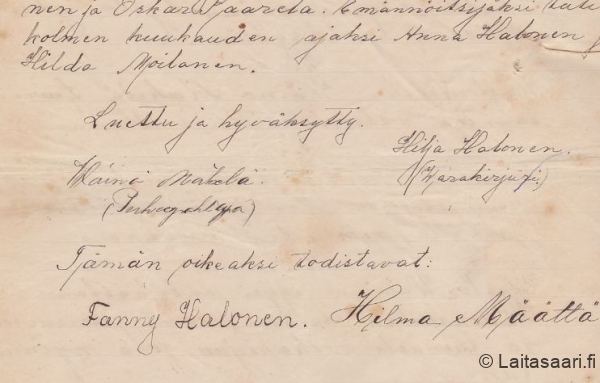 nen ja Oskar Paareta. Emännöitsijäksi tuli
kolmen kuukauden ajaksi Anna Halonen j
Hilda Moilanen.
Luettu ja hyväksytty.
Hilja Halonen.
Wäinö Mäkelä.
Tämän oikeaksi todistavat:
Fanny Halonen. Hilma Määttä
© Laitasaari.fi